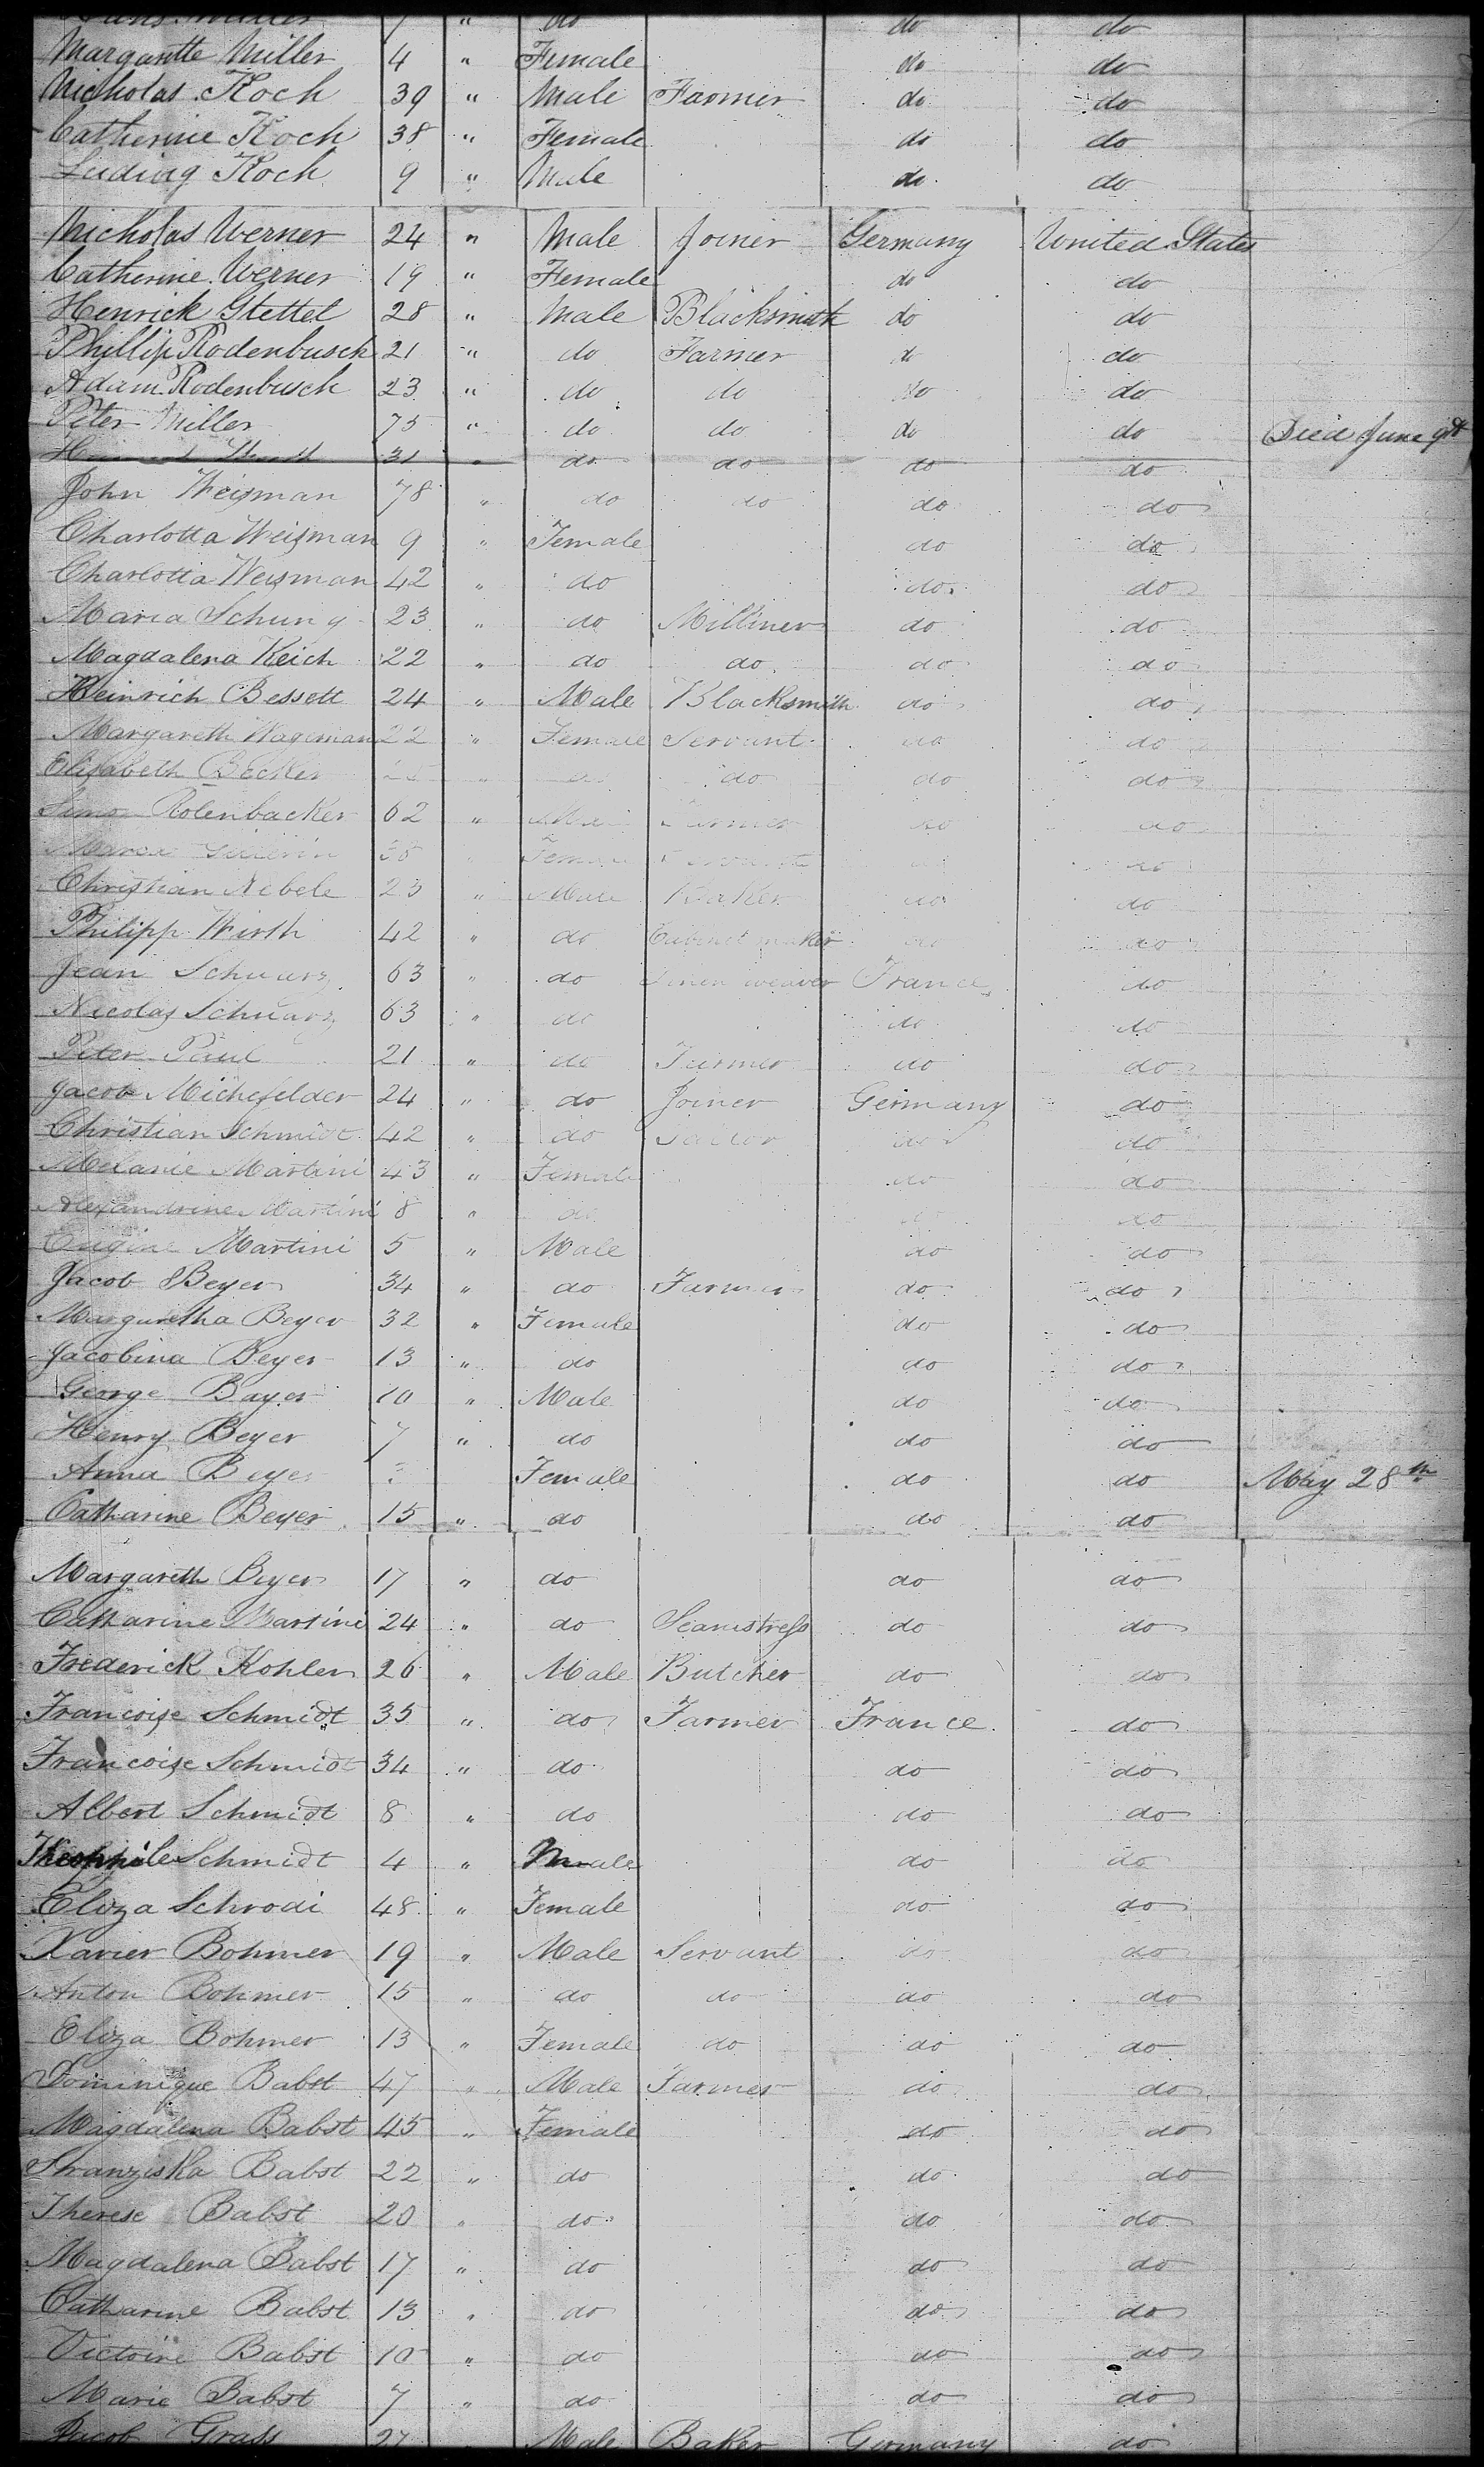 Hans Miller 7 " do do do
Margarette Miller 4 " Female do do
Nicholas Koch 39 " Male Farmer do do
Catherine Koch 38 " Female do do
Ludwig Koch 9 " Male do do
Nicholas Werner 24 " Male Joiner Germany United States
Catherine Werner 19 " Female do do
Henrick Stettel 28 " Male Blacksmith do do
Phillip Rodenbusch 21 " do Farmer do do
Adam Rodenbusch 23 " do do do do
Peter Miller 75 " do do do do Died June 9th
31 " do do do do
John Weisman 78 " do do do do
Charlotta Weisman 9 " Female do do
Charlotta Weisman 42 " do do do
Maria Schung 23 " do Milliner do do
Magdalena Keich 22 " do do do do
Heinrich Bessett 24 " Male Blacksmith do do
Margareth Wageman 22 " Female Servant do do
Elisabeth Becker " do do do
Rolenbacker 62 " Farmer do do
Maria " Female do do
Christian Nebele 23 " Male Baker do do
Philipp Wirth 42 " do Cabinet maker do do
Jean Schwarz 63 " do Linen weaver France do
Nicolas Schwarz 63 " do do do
Peter Paul 21 " do Farmer do do
Jacob Michefelder 24 " do Joiner Germany do
Christian Schmidt 42 " do Tailor do do
Melanie Martini 43 " Female do do
Alexandrine Martini 8 " do do do
Eugine Martini 5 " Male do do
Jacob Beyer 34 " do Farmer do do
Margaretha Beyer 32 " Female do do
Jacobina Beyer 13 " do do do
George Bayer 10 " Male do do
Henry Beyer 7 " do do do
Anna Beyer Female do do May 28th
Catharine Beyer 15 " do do do
Margareth Beyer 17 " do do do
Catharine Martini 24 " do Seamstress do do
Frederick Kohler 26 " Male Butcher do do
Francoise Schmidt 35 " do Farmer France do
Francoise Schmidt 34 " do do do
Albert Schmidt 8 " do do do
Theophile Schmidt 4 " Male do do
Eliza Schrodi 48 " Female do do
Xavier Bohmer 19 " Male Servant do do
Anton Bohmer 15 " do do do do
Eliza Bohmer 13 " Female do do do
Dominique Babst 47 " Male Farmer do do
Magdalena Babst 45 " Female do do
Franziska Babst 22 " do do do
Therese Babst 20 " do do do
Magdalena Babst 17 " do do do
Catharine Babst 13 " do do do
Victoire Babst 10 " do do do
Marie Babst 7 " do do do
Jacob Grass 27 Male Baker Germany do